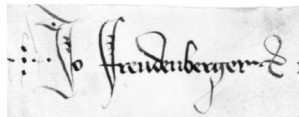 Jo Freudenberger